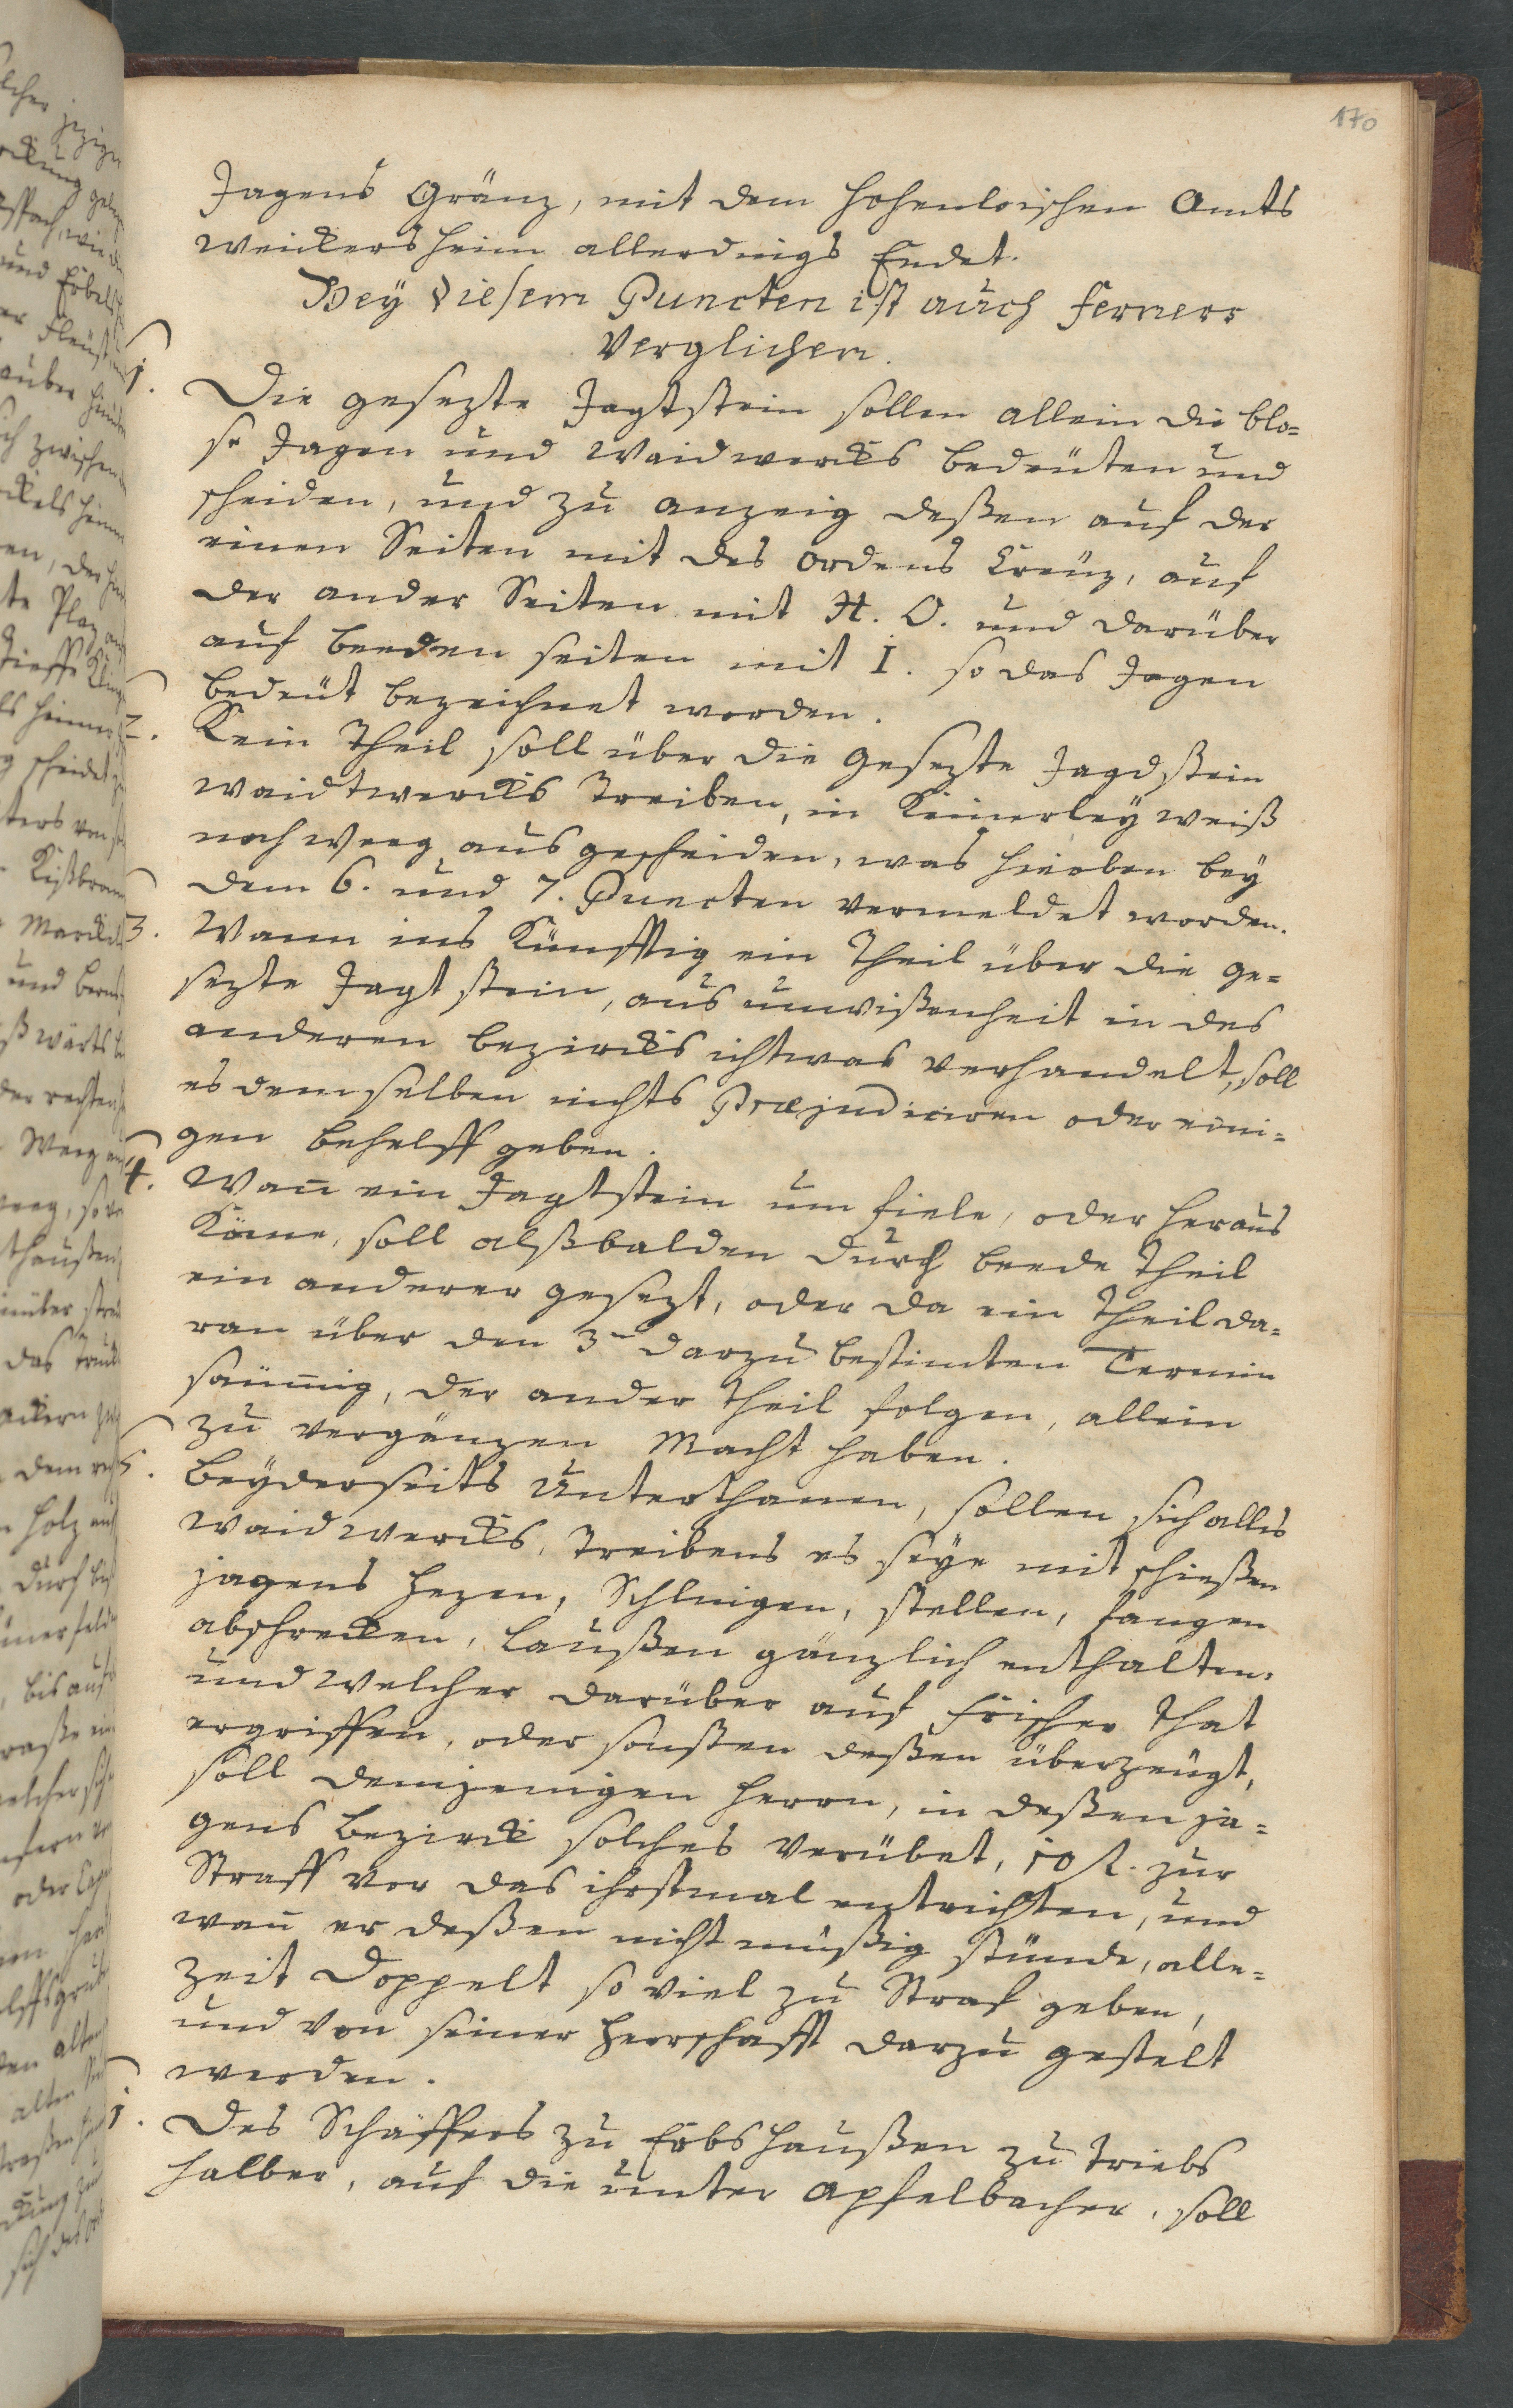 170
Jagens Gränz, mit dem Hohenloischen Amts
Weickersheim allerdings Endet.
Bey diesem Puncten ist auch ferners
Verglichen.
1. Die gesezte Jagtstein sollen allein die blo=
se Jagen und Waidwercks bedeuten und
scheiden, und zu anzeig deßen auf der
einen Seiten mit des ordens Creuz, auf
der ander Seiten mit H. O. und darüber
auf beeden seiten mit I. so das Jagen
bedeut bezeichnet worden.
2. Kein Theil soll über die gesezte Jagdstein
waidtwercks Treiben, in Keinerley weiß
noch weeg ausgescheiden, was hieoben bey
dem 6. und 7. Puncten vermeldet worden.
3. Wann ins Künfftig ein Theil über die ge=
sezte Jagtstein, aus unwißenheit in des
anderen bezircks ichtwas verhandelt, soll
es demselben nichts Præjudiciren oder eini=
gen behelff geben.
4. Wañ ein Jagtstein um fiele, oder heraus
Käme, soll alßbalden durch beede Theil
ein anderer gesezt, oder da ein Theil da=
ran über den 3n darzu bestimten Termin
säumig, der ander Theil folgen, allein
zu vergänzen Macht haben.
5. Beyderseits Unterthanen, sollen sich alles
waidwercks, Treibens es seye mit schießen
jagens hezen, Schlingen, stellen, fangen
abschrecken, laußen gänzlich enthalten.
und welcher darüber auf frischer That
ergriffen, oder sonsten deßen überzeugt,
soll demjenigen Herrn, in deßen ja=
gens bezirck solches verübet, 10 fl. zur
Straff vor das ihrstmal entrichten, und
wañ er deßen nicht müßig stünde, alle=
zeit Doppelt so viel zu Straf geben,
und von seiner Herrschafft darzu gestelt
werden.
1. Des Schäffers zu Erbshaußen zu Triebs
halber, auf die unter Apfelbacher, soll